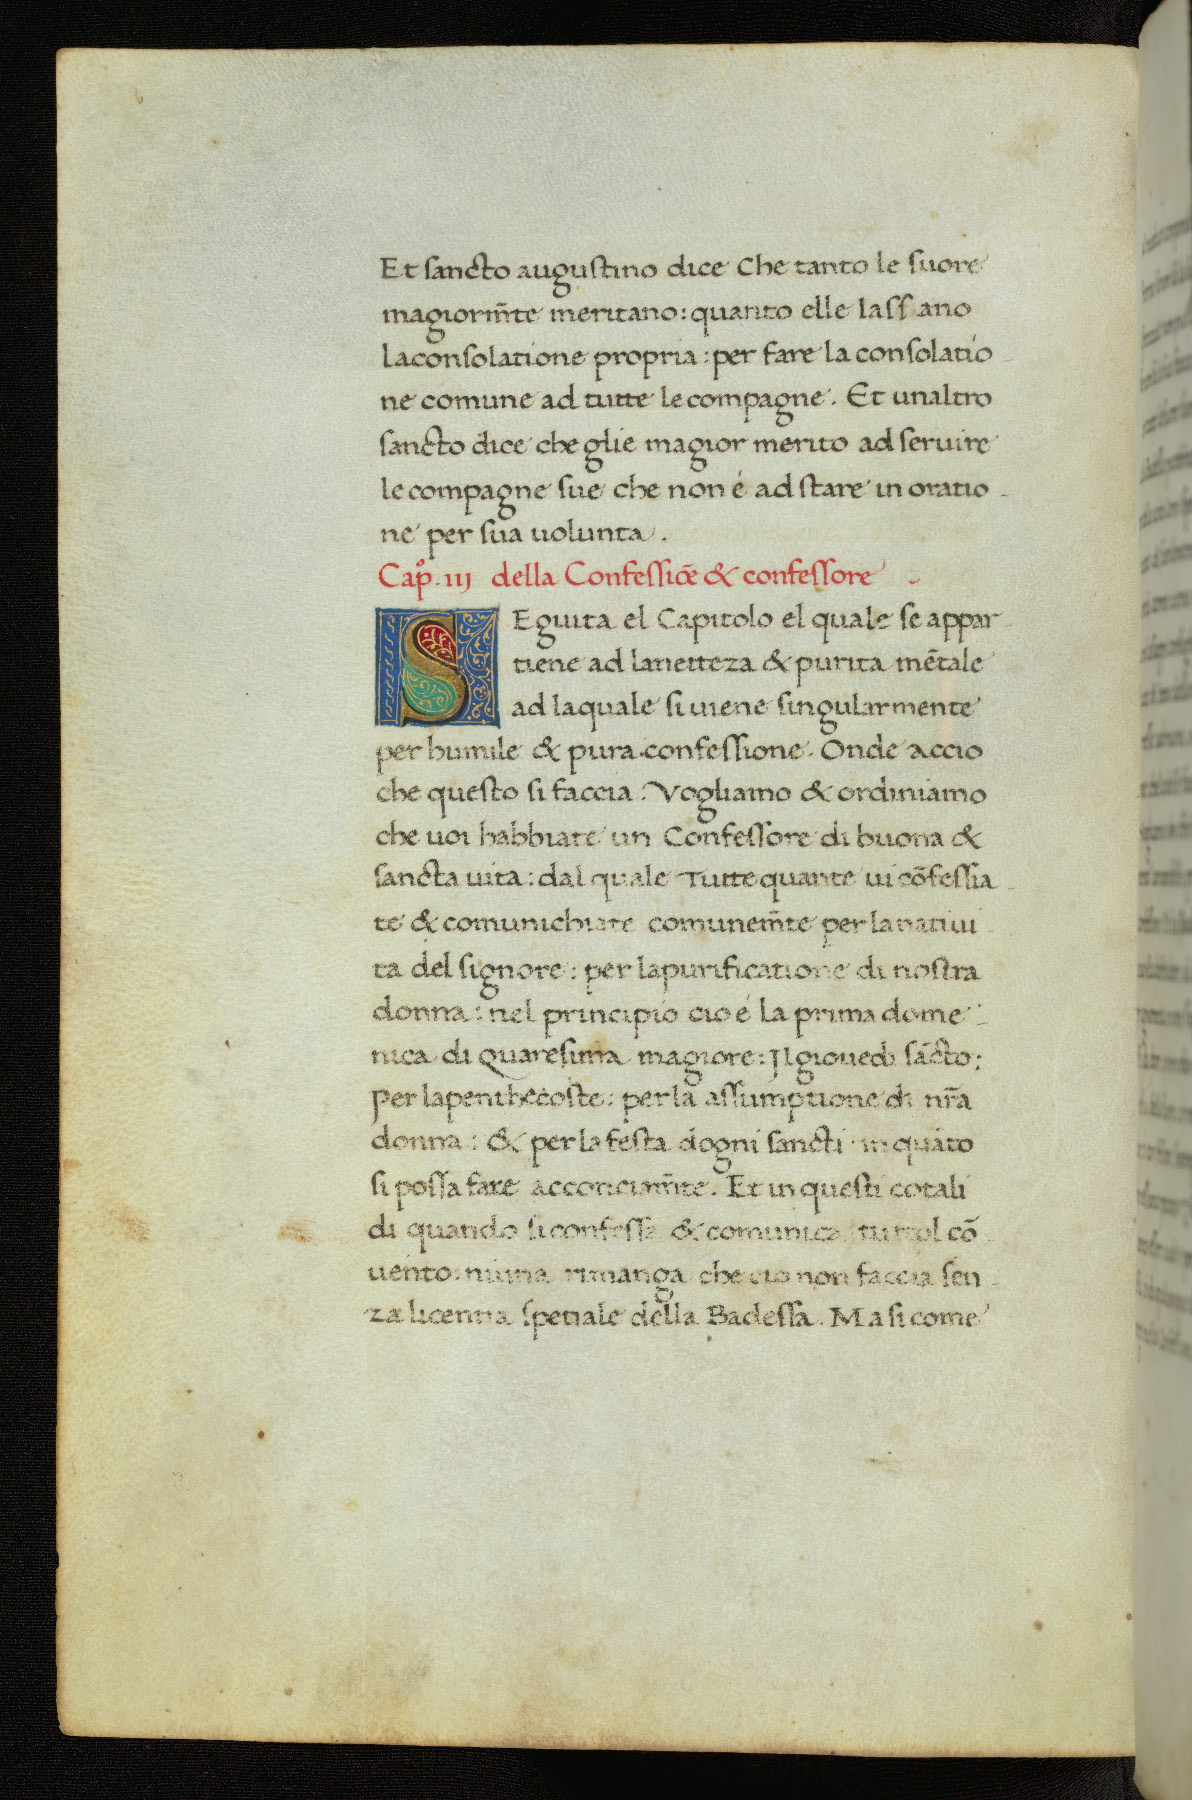 Et sancto augustino dice Che tanto le suore
magiorm̃te meritano: quanto elle lassano
laconsolatione propria: per fare la consolatio
ne comune ad tutte lecompagne. Et unaltro
sancto dice che glie magior merito ad seruire
lecompagne sue che non é ad stare in oratio-
ne per sua uolunta.
Cap.º iii della Confessiõe & confessore
SEguita el Capitolo el quale se appar
tiene ad lanetteza & purita mẽtale
ad laquale si uiene singularmente
per humile & pura confessione. Onde accio
che questo si faccia: Vogliamo & ordiniamo
che uoi habbiate un Confessore di buona &
sancta uita: dal quale Tutte quante ui cõfessia-
te & comunichiate comunem̃te per la natiui-
ta del signore: per lapurificatione di nostra
donna: nel principio cio é la prima dome-
nica di Quaresima magiore: Jl giouedi sãcto:
per lapenthecoste: per la assumptione di nr̃a
donna: & per la festa dogni sancti in quãto
si possa fare acconciam̃te. Et in questi cotali
di quando si confessa & comunica tuttol cõ-
uento. niuna rimanga che cio non faccia sen-
za licentia spetiale della Badessa. Ma si come